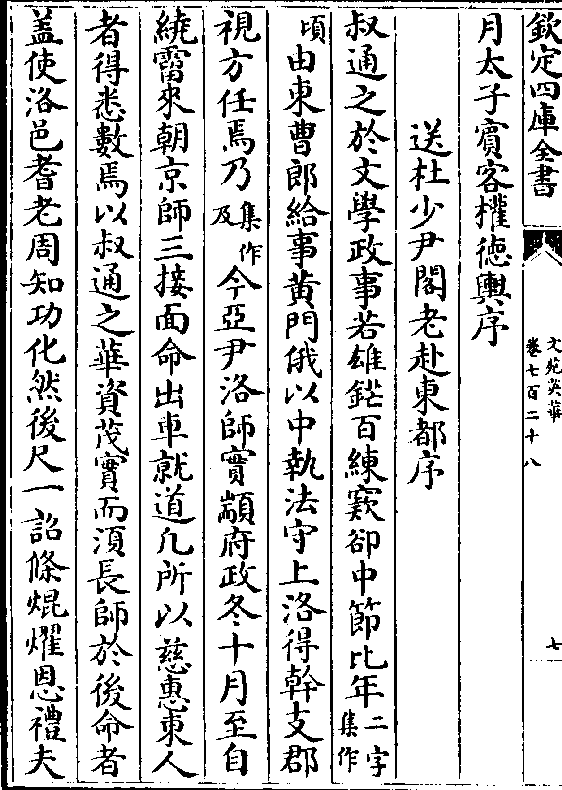 欽定四庫全書
文苑英華
卷七百二十八
七
月太子賓客權徳輿序
送杜少尹閣老赴東都序
叔通之於文學政事若雄鋩百練窾卻中節比年二字集作
頃由東曹郎給事黄門俄以中執法守上洛得幹支郡
視方任焉乃集作及今亞尹洛師實顓府政冬十月至自
繞霤來朝京師三接面命出車就道凡所以慈惠東人
者得悉數焉以叔通之華資茂實而湏長師於後命者
盖使洛邑耆老周知功化然後尺一詔條焜燿恩禮夫